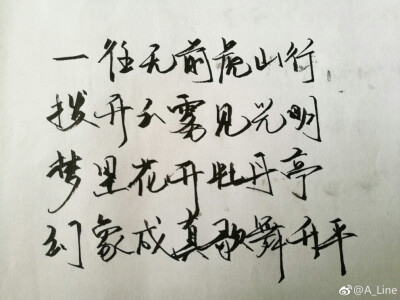 一往无前虎山行
拨开云雾见光明
梦里花开牡丹亭
幻象成真歌舞升平
@A_Line